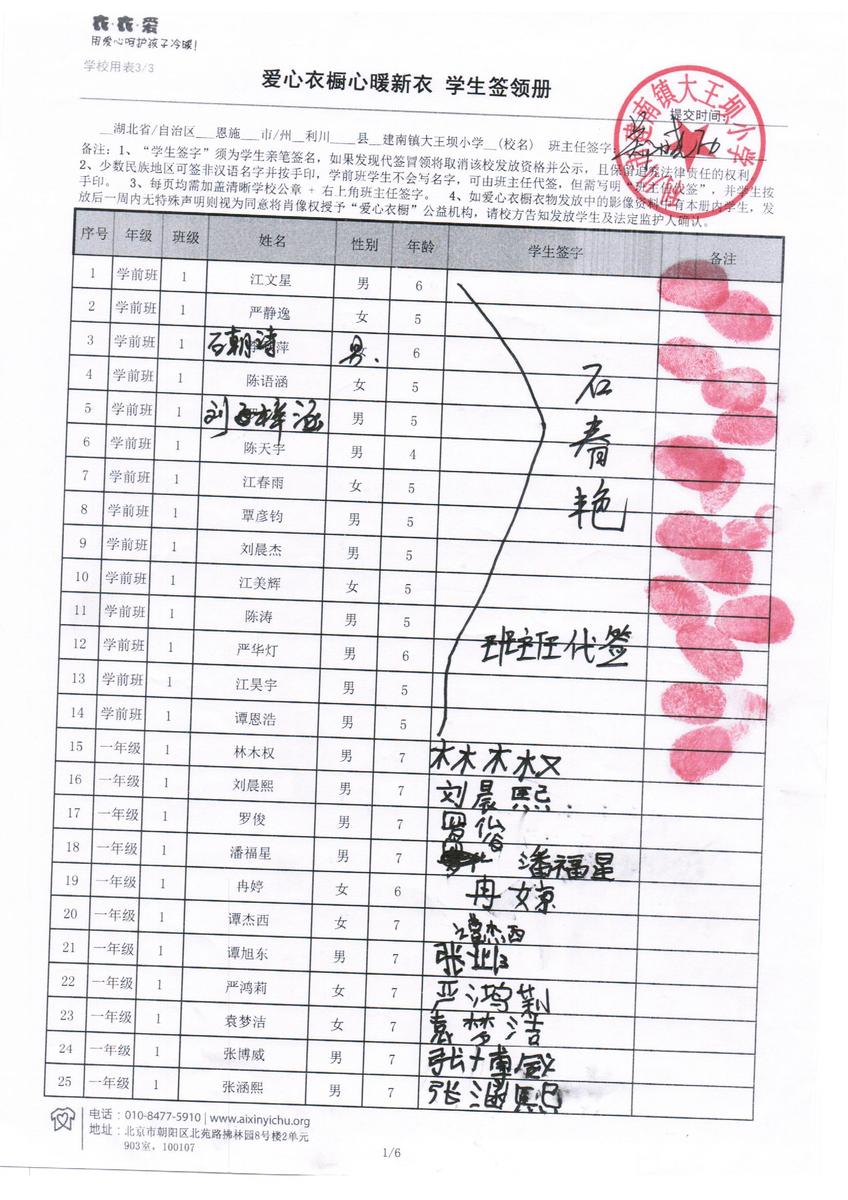 衣·衣·爱
用爱心呵护孩子冷暖！
学校用表3/3
爱心衣橱心暖新衣 学生签领册
建南镇大王坝小学
提交时间：
湖北省/自治区 恩施 市/州 利川 县 建南镇大王坝小学 (校名) 班主任签字：
备注：1、“学生签字”须为学生亲笔签名，如果发现代签冒领将取消该校发放资格并公示，且保留追究法律责任的权利。
2、少数民族地区可签非汉语名字并按手印，学前班学生不会写名字，可由班主任代签，但需写明“班主任代签”，并学生按
手印。 3、每页均需加盖清晰学校公章 + 右上角班主任签字。 4、如爱心衣橱衣物发放中的影像资料中有本册内学生，发
放后一周内无特殊声明则视为同意将肖像权授予“爱心衣橱”公益机构，请校方告知发放学生及法定监护人确认。
序号 年级 班级 姓名 性别 年龄 学生签字 备注
1 学前班 1 江文星 男 6
2 学前班 1 严静逸 女 5
3 学前班 1 石朝诗 萍 男. 6
4 学前班 1 陈语涵 女 5
石春艳
5 学前班 1 刘 梓涵 男 5
6 学前班 1 陈天宇 男 4
7 学前班 1 江春雨 女 5
8 学前班 1 覃彦钧 男 5
9 学前班 1 刘晨杰 男 5
10 学前班 1 江美辉 女 5
11 学前班 1 陈涛 男 5
12 学前班 1 严华灯 男 6 班主任代签
13 学前班 1 江昊宇 男 5
14 学前班 1 谭恩浩 男 5
15 一年级 1 林木权 男 7 林木权
16 一年级 1 刘晨熙 男 7 刘晨熙
17 一年级 1 罗俊 男 7
18 一年级 1 潘福星 男 7 潘福星
19 一年级 1 冉婷 女 6 冉
20 一年级 1 谭杰西 女 7 谭杰西
21 一年级 1 谭旭东 男 7
22 一年级 1 严鸿莉 女 7 严鸿莉
23 一年级 1 袁梦洁 女 7 袁梦洁
24 一年级 1 张博威 男 7 张博
25 一年级 1 张涵熙 男 7 张涵熙
电话：010-8477-5910 | www.aixinyichu.org
地址：北京市朝阳区北苑路拂林园8号楼2单元
903室，100107
1/6